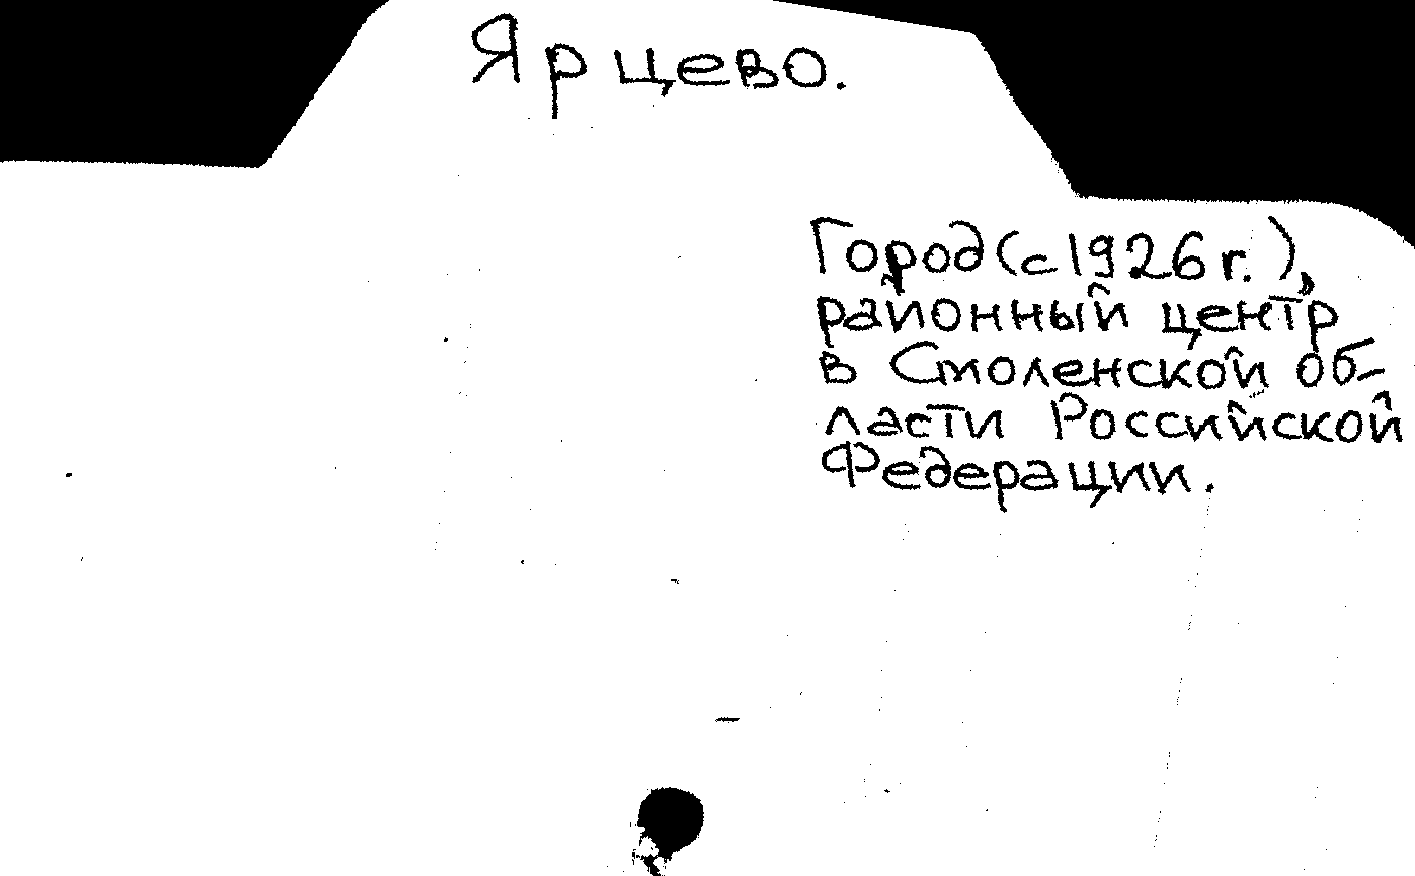 Ярцево.
Город (с 1926 г.),
районный центр
в Смоленской об-
ласти Российской
Федерации.